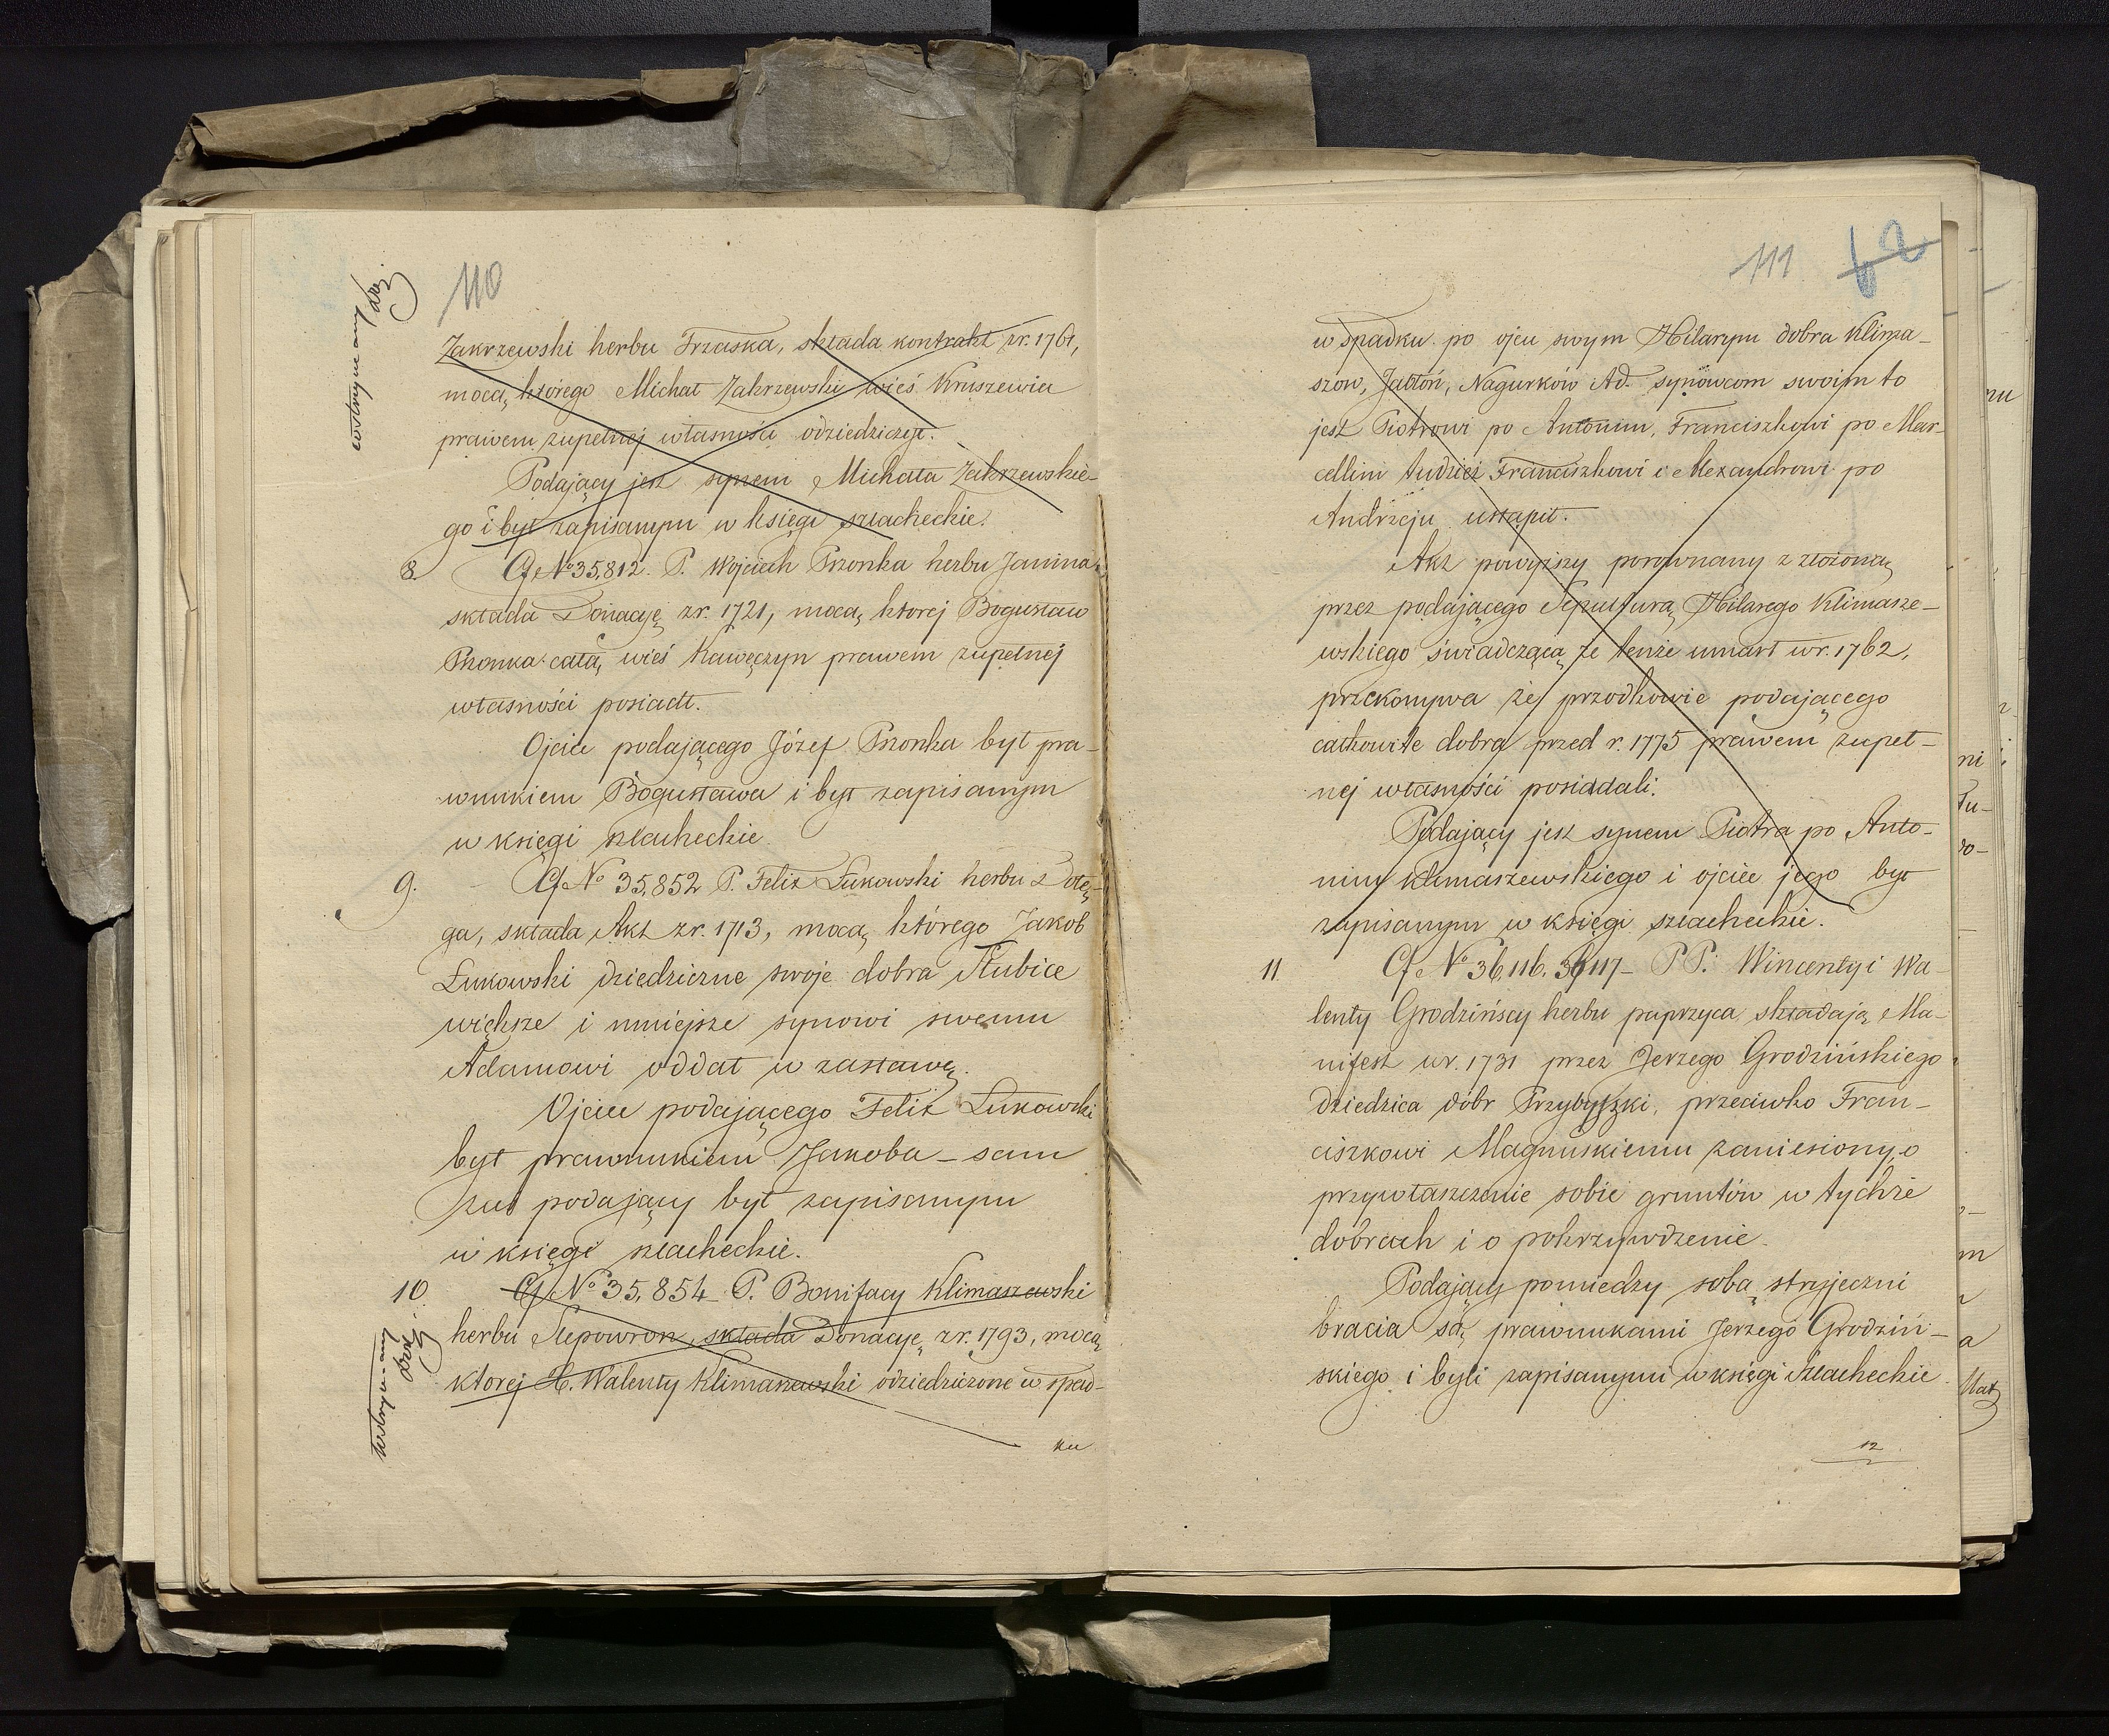 110
wstrzymany
Zakrzewski herbu Trzaska, składa kontrakt zr. 1761,
mocą którego Michał Zakrzewski wieś Kruszewice
prawem zupełnej własności odziedziczył.
Podający jest synem Michała Zakrzewskie-
go i był zapisanym w księgi szlacheckie.
8. Cf No 35,812. P. Wojciech Pszonka herbu Janina,
składa Donacyę zr. 1721, mocą ktorej Bogusław
Pszonka całą wieś Kawęczyn prawem zupełnej
własności posiadł.
Ojciec podającego Józef Pszonka był pra-
wnukiem Bogusława i był zapisanym
w księgi szlacheckie
9. Cf No 35,852 P. Felix Łukowski herbu Dołę-
ga, składa Akt zr. 1713, mocą którego Jakob
Łukowski dziedziczne swoje dobra Słubice
większe i mniejsze synowi swemu
Adamowi oddał w zastawę.
Ojciec podającego Felix Łukowski
był prawnukiem Jakoba – sam
zaś podający był zapisanym
w księgi szlacheckie.
10 Cf No 35,854 – P. Bonifacy Klimaszewski
wstrzymany
herbu Slepowron, składa Donacyę zr. 1793, mocą
ktorej X. Walenty Klimaszewski odziedziczone w spad-
ku
111 62
w spadku po ojcu swym Hilarym dobra Klima-
szow, Jabłoń, Nagurków Ad. synowcom swoim to
jest Piotrowi po Antonim, Franciszkowi po Mar-
cellim tudzież Franciszkowi i Alexandrowi po
Andrzeju ustąpił.
Akt powyższy porównany z złożoną
przez podającego Sepulturą Hilarego Klimasze-
wskiego świadczącą że tenże umarł w r. 1762,
przekonywa że przodkowie podającego
całkowite dobra przed r. 1775 prawem zupeł-
nej własności posiadali.
Podający jest synem Piotra po Anto-
nim Klimaszewskiego i ojciec jego był
zapisanym w księgi szlacheckie.
11. Cf No 36,116. 36,117 – P P. Wincenty i Wa-
lenty Grodzińscy herbu paprzyca składają Ma-
nifest w r. 1731 przez Jerzego Grodzińskiego
dziedzica dóbr Przybyszki, przeciwko Fran-
ciszkowi Magnuskiemu zaniesiony, o
przywłaszczenie sobie gruntów w tychże
dobrach i o pokrzywdzenie.
Podający pomiedzy sobą stryjeczni
bracia są prawnukami Jerzego Grodziń-
skiego i byli zapisanymi w księgi Szlacheckie.
12